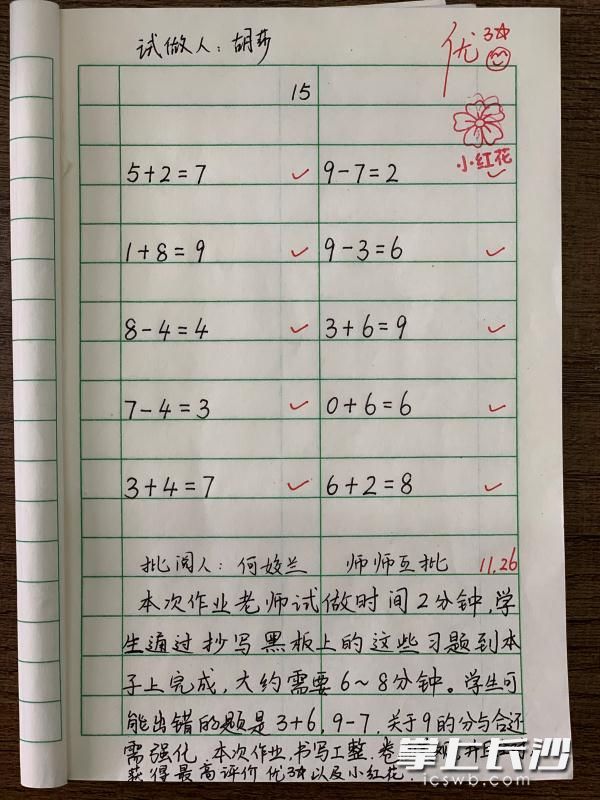 试做人：胡莎
优 3☆
15
小红花
5+2=7 ✓ 9-7=2 ✓
1+8=9 ✓ 9-3=6 ✓
8-4=4 ✓ 3+6=9 ✓
7-4=3 ✓ 0+6=6 ✓
3+4=7 ✓ 6+2=8 ✓
批阅人：何姣兰 师师互批 11.26
本次作业老师试做时间2分钟,学
生通过抄写黑板上的这些习题到本
子上完成,大约需要6~8分钟。学生可
能出错的题是3+6,9-7,关于9的分与合还
需强化。本次作业,书写工整.卷
获得最高评价优3☆以及小红花.
掌上长沙
icswb.com